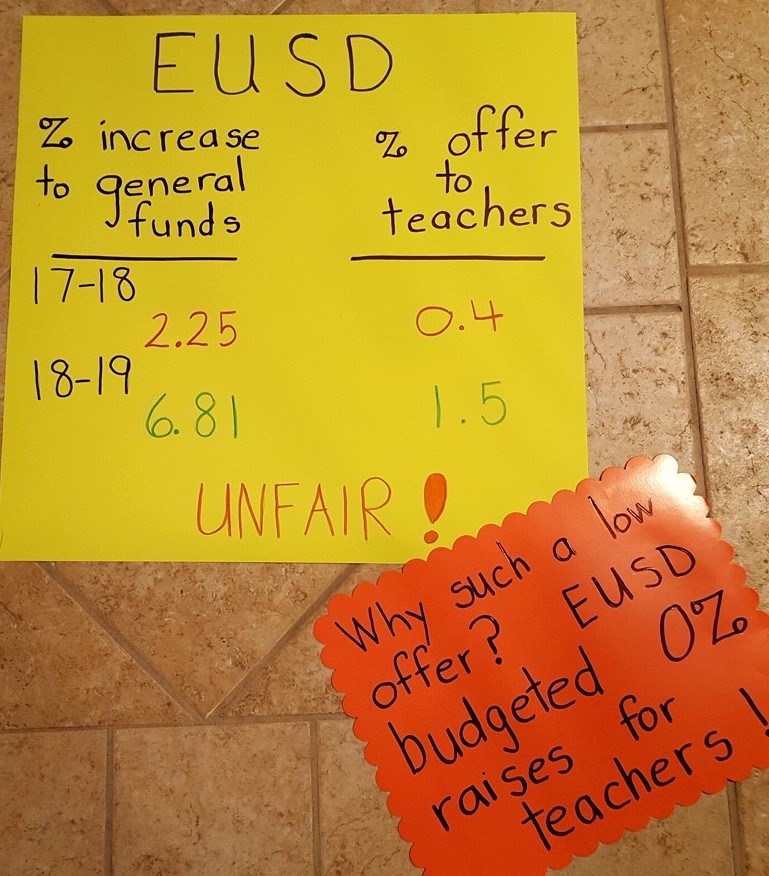 EUSD
% increase
to general
funds
% offer
to
teachers
17-18
2.25
0.4
18-19
6.81
1.5
UNFAIR!
Why such a low
offer? EUSD
budgeted 0%
raises for
teachers!